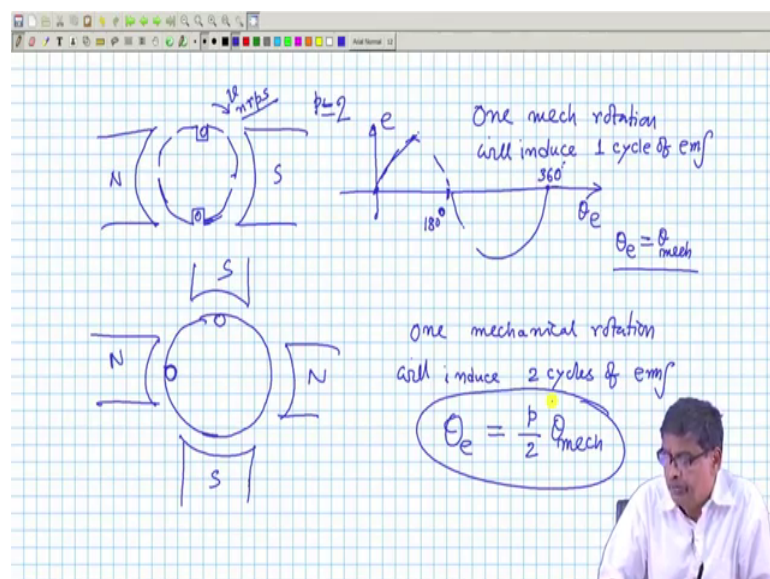 Arial Normal 12
n rps
p=2
N
S
e
180°
360°
θe
One mech rotation
will induce 1 cycle of emf
θe = θmech
S
N
N
S
One mechanical rotation
will induce 2 cycles of emf
θe = p/2 θmech